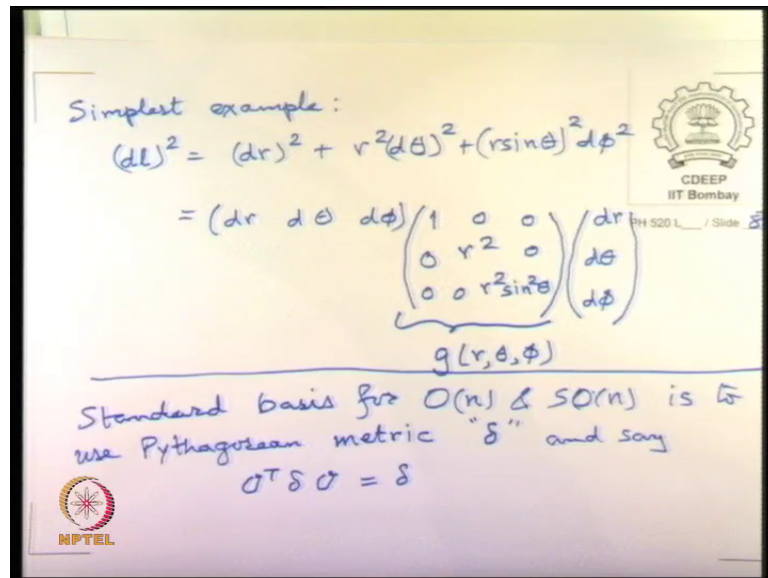 Simplest example:
(dl)² = (dr)² + r²(dθ)² + (r sinθ)² dφ²
= (dr dθ dφ) (1 0 0
0 r² 0
0 0 r²sin²θ) (dr
dθ
dφ)
g(r, θ, φ)
CDEEP
IIT Bombay
PH 520 L___ / Slide 8
Standard basis for O(n) & SO(n) is to
use Pythagorean metric "δ" and say
Oᵀ δ O = δ
NPTEL